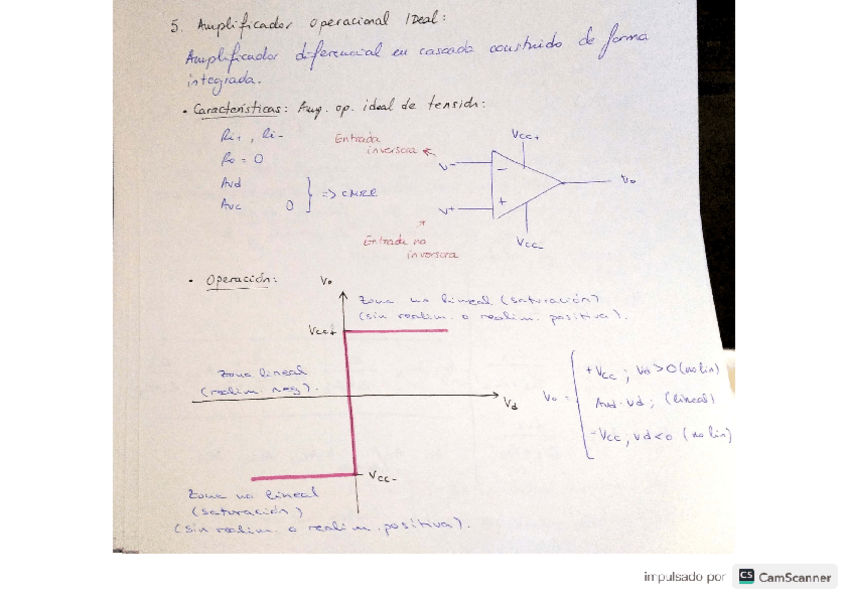 5. Amplificador operacional Ideal:
Amplificador diferencial en cascada construido de forma
integrada.
• Características: Amp. op. ideal de tensión:
Ri+, Ri-
Ro = 0
Avd
Avc 0 } => CMRR
Entrada
inversora
V-
V+
Vcc+
-
+
Vo
Vcc-
Entrada no
inversora
• Operación:
Vo
Zona no lineal (saturación)
(sin realim. o realim. positiva).
Vcc+
Zona lineal
(realim. neg).
Vd
Vo = { +Vcc ; Vd>0 (no lin)
Avd·Vd ; (lineal)
-Vcc, Vd<0 (no lin)
Vcc-
Zona no lineal
(saturación)
(sin realim. o realim. positiva).
impulsado por CS CamScanner